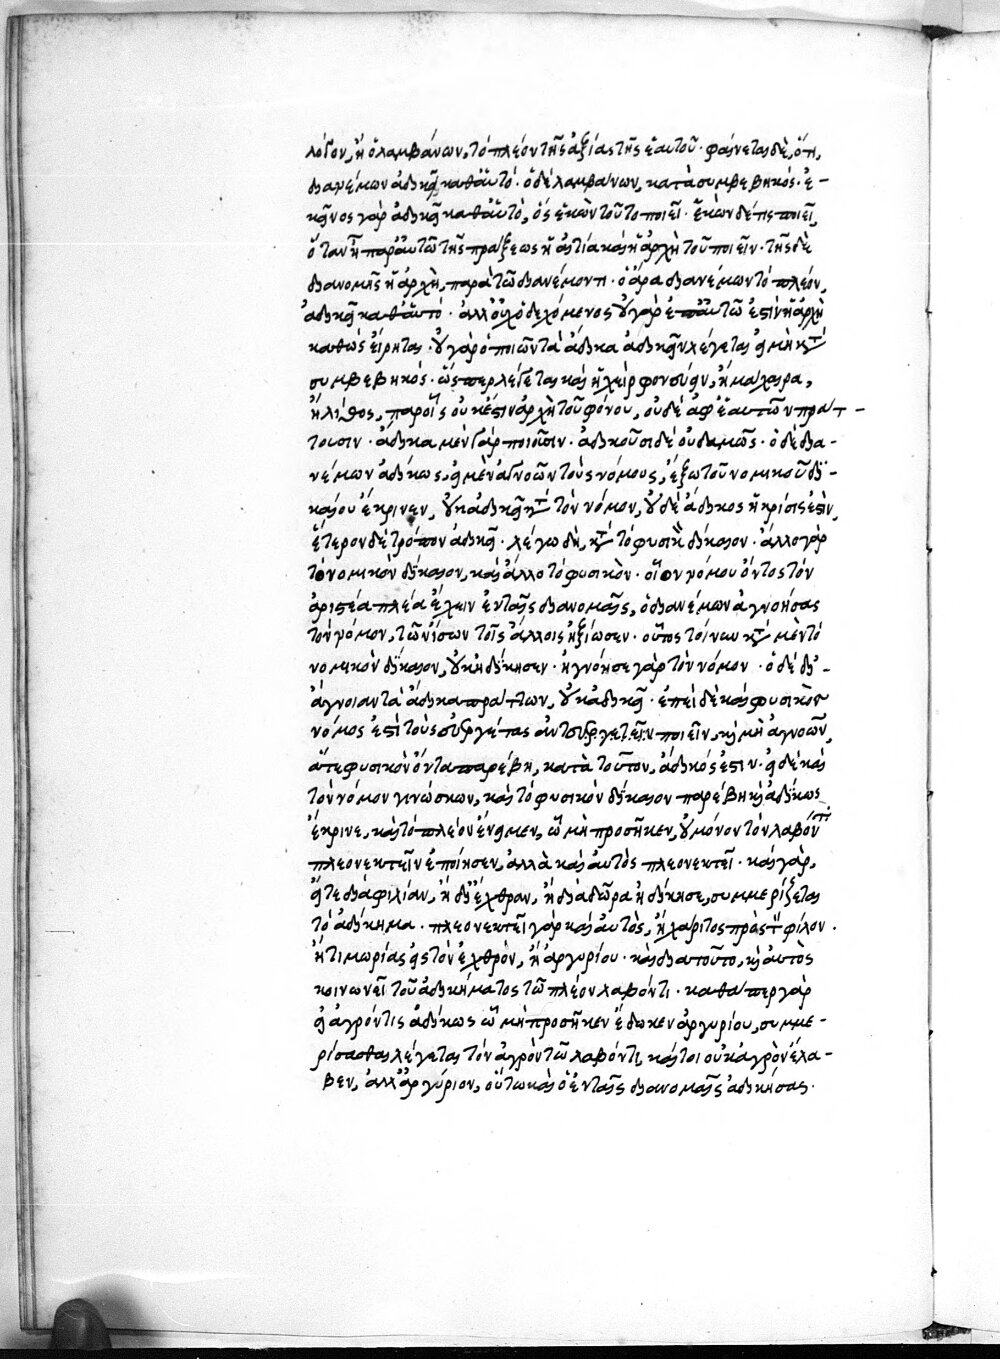 λόγον, ἢ ὁ λαμβάνων, τὸ πλέον τῆς ἀξίας τῆς ἑαυτοῦ· φαίνεται δὲ, ὅτι,
διανέμων ἀδικεῖ καθ' αὑτό· ὁ δὲ λαμβάνων, κατὰ συμβεβηκός· ἐ-
κεῖνος γὰρ ἀδικεῖ καθ' αὑτὸ, ὃς ἑκὼν τοῦτο ποιεῖ· ἑκὼν δέ τις ποιεῖ,
ὅταν ᾖ παρ' αὐτῶ τῆς πράξεως ἡ αἰτία καὶ ἡ ἀρχὴ τοῦ ποιεῖν· τῆς δὲ
διανομῆς ἡ ἀρχὴ, παρὰ τῶ διανέμοντι· ὁ ἄρα διανέμων τὸ πλέον,
ἀδικεῖ καθ' αὑτό· ἀλλ' οὐχ ὁ δεχόμενος οὐ γὰρ ἐπ' αὐτῶ ἐστὶν ἡ ἀρχὴ
καθὼς εἴρηται· οὐ γὰρ ὁ ποιῶν τὰ ἄδικα ἀδικεῖν λέγεται εἰ μὴ κατὰ
συμβεβηκός· ὥσπερ λέγεται καὶ ἡ χεὶρ φονεύειν, ἢ μάχαιρα,
ἢ λίθος, παρ' οἷς οὐκ ἔστιν ἀρχὴ τοῦ φόνου, οὐδὲ ἀφ' ἑαυτῶν πράτ-
τουσιν· ἄδικα μὲν γὰρ ποιοῦσιν· ἀδικοῦσι δὲ οὐδαμῶς· ὁ δὲ δια-
νέμων ἀδίκως, εἰ μὲν ἀγνοῶν τοὺς νόμους, ἔξω τοῦ νομικοῦ δι-
καίου ἔκρινεν, οὐκ ἀδικεῖ κατὰ τὸν νόμον, οὐδὲ ἄδικος ἡ κρίσις ἐστὶν,
ἕτερον δὲ τρόπον ἀδικεῖ· λέγω δὴ, κατὰ τὸ φυσικὸν δίκαιον· ἄλλο γὰρ
τὸ νομικὸν δίκαιον, καὶ ἄλλο τὸ φυσικὸν· οἷον νόμου ὄντος τὸν
ἀριστέα πλέα ἔχειν ἐν ταῖς διανομαῖς, ὁ διανέμων ἀγνοήσας
τὸν νόμον, τῶν ἴσων τοῖς ἄλλοις ἠξίωσεν· οὗτος τοίνυν κατὰ μὲν τὸ
νομικὸν δίκαιον, οὐκ ἠδίκησεν· ἠγνόησε γὰρ τὸν νόμον· ὁ δὲ δι'
ἄγνοιαν τὰ ἄδικα πράττων, οὐκ ἀδικεῖ· ἐπεὶ δὲ καὶ φυσικὸς
νόμος ἐστὶ τοὺς εὐεργέτας ἀντευεργετεῖν ποιεῖν, καὶ μὴ ἀγνοῶν,
ἅτε φυσικὸν ὄντα παρέβη, κατὰ τοῦτον, ἄδικός ἐστιν· εἰ δὲ καὶ
τὸν νόμον γινώσκων, καὶ τὸ φυσικὸν δίκαιον παρέβη καὶ ἀδίκως
ἔκρινε, καὶ τὸ πλέον ἔνειμεν, ᾧ μὴ προσῆκεν, οὐ μόνον τὸν λαβόντα
πλεονεκτεῖν ἐποίησεν, ἀλλὰ καὶ αὐτὸς πλεονεκτεῖ· καὶ γὰρ,
εἴτε διὰ φιλίαν, ἢ δι' ἔχθραν, ἢ διὰ δῶρα ἠδίκησε, συμμερίζεται
τὸ ἀδίκημα· πλεονεκτεῖ γὰρ καὶ αὐτὸς, ἢ χάριτος πρὸς τὸν φίλον·
ἢ τιμωρίας εἰς τὸν ἐχθρὸν, ἢ ἀργυρίου· καὶ διὰ τοῦτο, καὶ αὐτὸς
κοινωνεῖ τοῦ ἀδικήματος τῶ πλέον λαβόντι· καθάπερ γὰρ
εἰ ἀγρόν τις ἀδίκως ᾧ μὴ προσῆκεν ἔδωκεν ἀργυρίου, συμμε-
ρίσασθαι λέγεται τὸν ἀγρὸν τῶ λαβόντι, καίτοι οὐκ ἀγρὸν ἔλα-
βεν, ἀλλ' ἀργύριον, οὕτω καὶ ὁ ἐν ταῖς διανομαῖς ἀδικήσας·